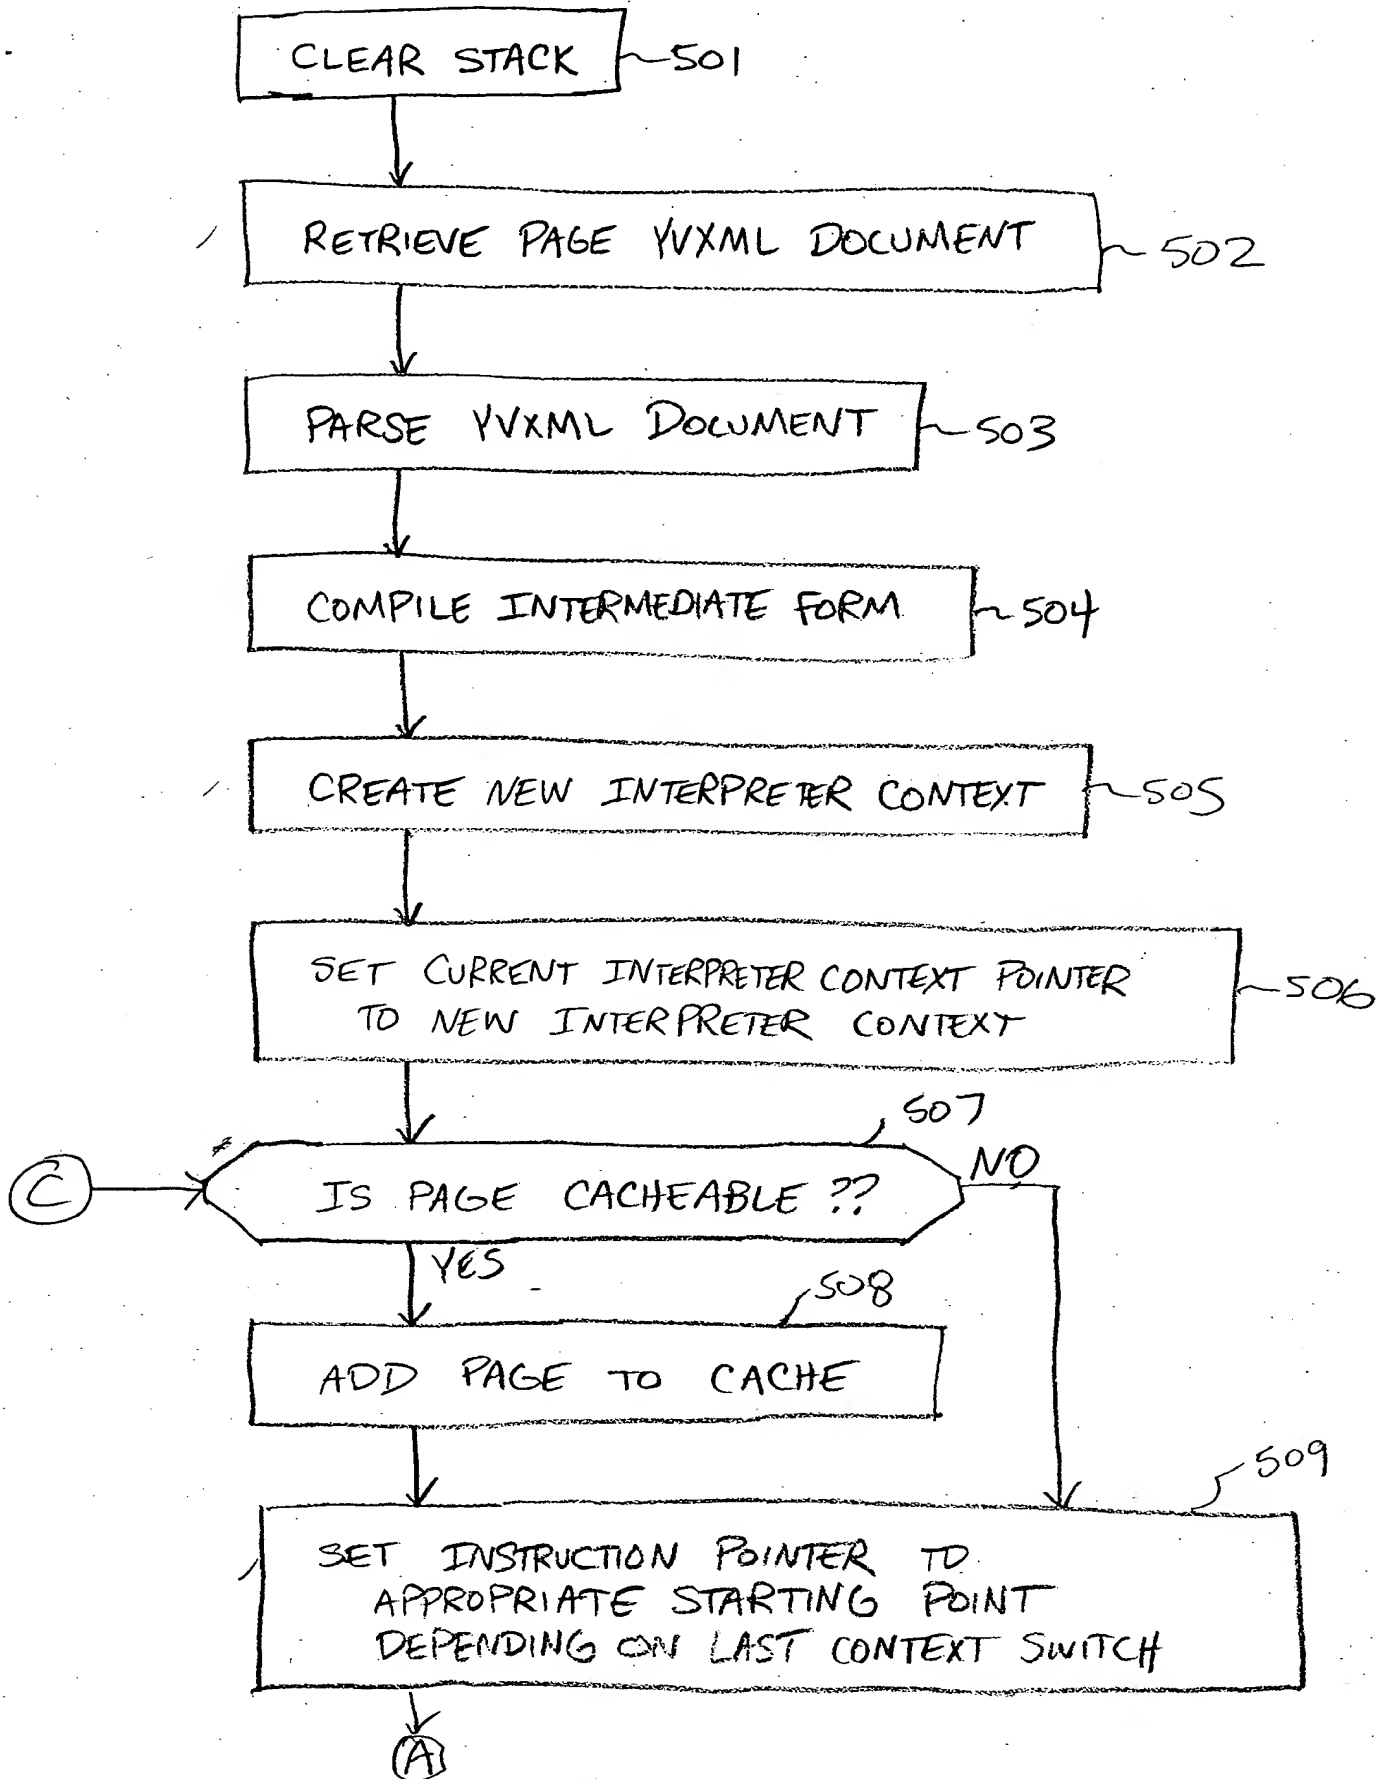 CLEAR STACK 501
RETRIEVE PAGE YVXML DOCUMENT 502
PARSE YVXML DOCUMENT 503
COMPILE INTERMEDIATE FORM 504
CREATE NEW INTERPRETER CONTEXT 505
SET CURRENT INTERPRETER CONTEXT POINTER
TO NEW INTERPRETER CONTEXT 506
507
C IS PAGE CACHEABLE ?? NO
YES
508
ADD PAGE TO CACHE
509
SET INSTRUCTION POINTER TO
APPROPRIATE STARTING POINT
DEPENDING ON LAST CONTEXT SWITCH
A